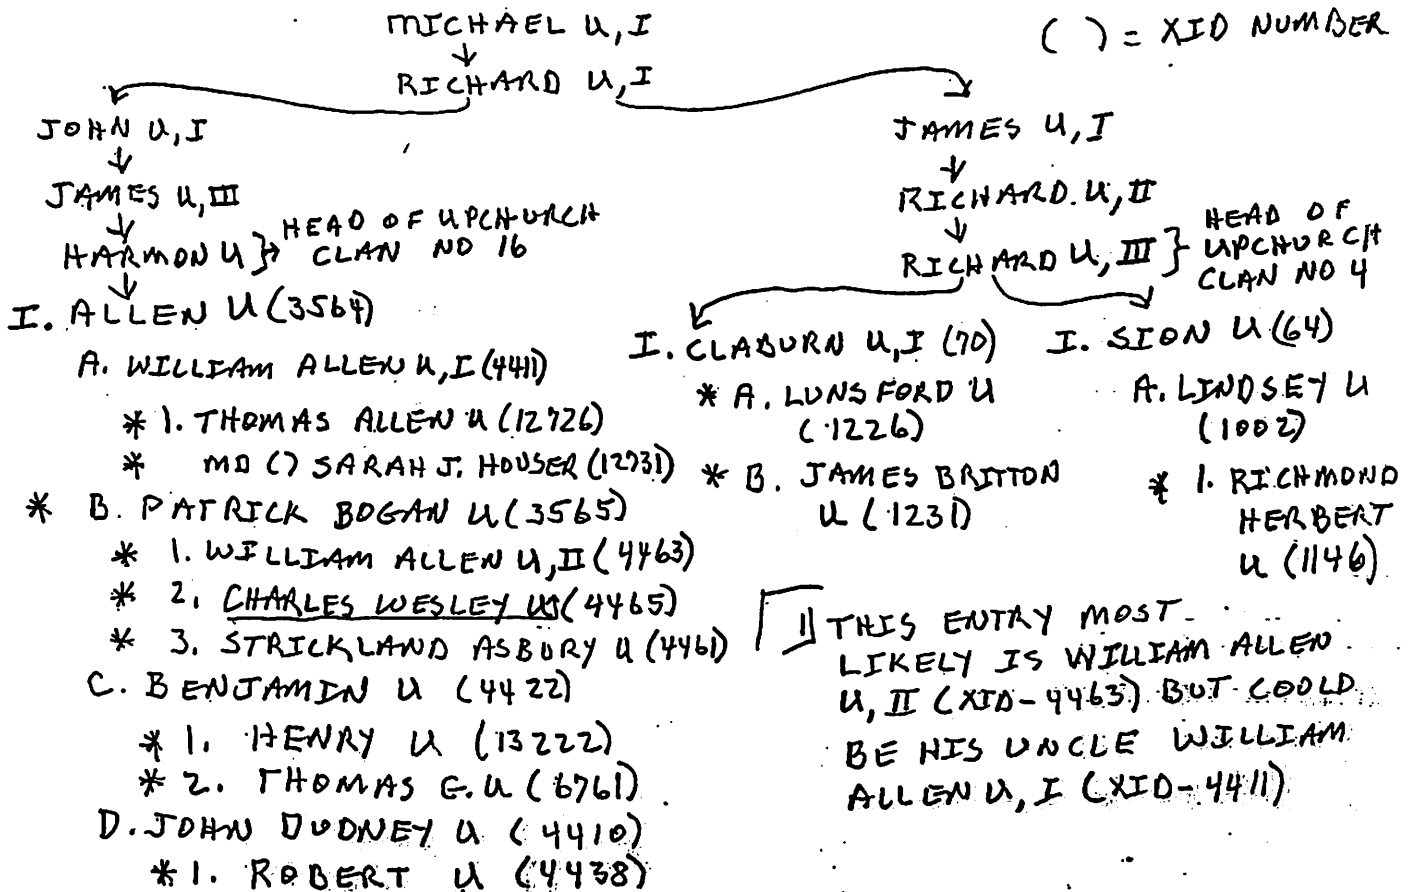 MICHAEL U, I
( ) = XID NUMBER
RICHARD U, I
JOHN U, I
JAMES U, III
HARMON U } HEAD OF UPCHURCH
CLAN NO 16
I. ALLEN U (3564)
A. WILLIAM ALLEN U, I (4411)
* 1. THOMAS ALLEN U (12726)
* MD () SARAH J. HOUSER (12731)
* B. PATRICK BOGAN U (3565)
* 1. WILLIAM ALLEN U, II (4463)
* 2. CHARLES WESLEY U (4465)
* 3. STRICKLAND ASBURY U (4461)
C. BENJAMIN U (4422)
* 1. HENRY U (13222)
* 2. THOMAS G. U (6761)
D. JOHN DUDNEY U (4410)
* 1. ROBERT U (4438)
JAMES U, I
RICHARD U, II
RICHARD U, III } HEAD OF
UPCHURCH
CLAN NO 4
I. CLABURN U, I (70)
* A. LUNSFORD U
(1226)
* B. JAMES BRITTON
U (1231)
I. SION U (64)
A. LINDSEY U
(1002)
* 1. RICHMOND
HERBERT
U (1146)
1] THIS ENTRY MOST
LIKELY IS WILLIAM ALLEN
U, II (XID-4463) BUT COOLD
BE HIS UNCLE WILLIAM
ALLEN U, I (XID-4411)